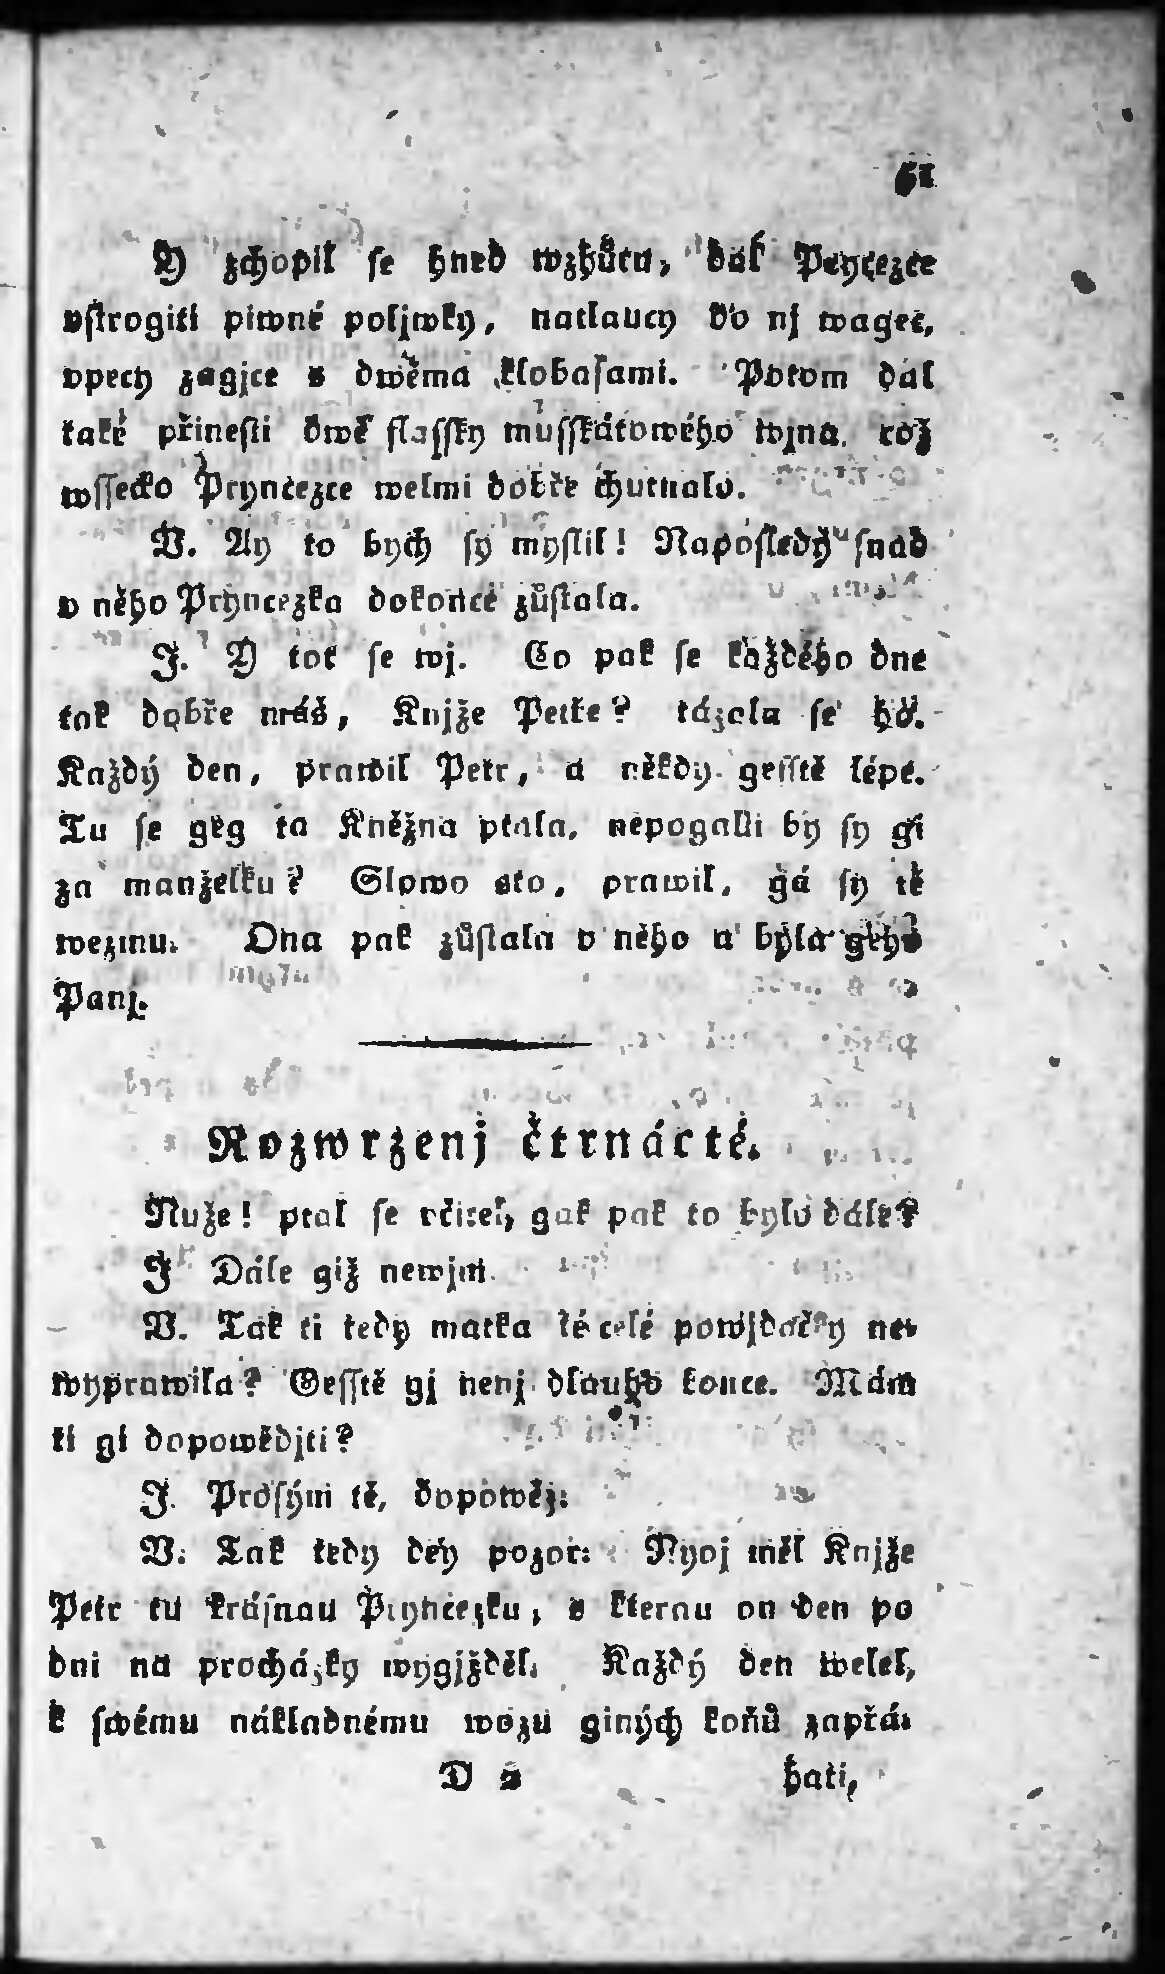 51
Y zchopil se hned wzhůru, dal Pryncezce
vstrogiti piwné poljwky, natlaucy do nj wagec,
vpecy zagjce s dwěma klobasami. Potom dal
také přinesti dwě flassky musskátowého wjna, což
wssecko Pryncezce welmi dobře chutnalo.
V. Ay to bych sy myslil! Naposledy snad
v něho Pryncezka dokonce zůstala.
J. Y toť se wj. Co pak se každého dne
tak dobře máš, Knjže Petře? tázala se ho.
Každý den, prawil Petr, a někdy gesstě lépe.
Tu se geg ta Kněžna ptala, nepogalli by sy gi
za manželku? Slowo sto, prawil, gá sy tě
wezmu. Ona pak zůstala v něho a byla geho
Panj.
Rozwrzenj čtrnácté.
Nuže! ptal se včitel, gak pak to bylo dále?
J Dále giž newjm.
V. Tak ti tedy matka té celé powjdačky ne-
wyprawila? Gesstě gj nenj dlauho konce. Mám
ti gi dopowědjti?
J. Prosým tě, dopowěz:
V. Tak tedy dey pozor: Nynj měl Knjže
Petr tu krásnau Pryncezku, s kterau on den po
dni na procházky wygjžděl. Každý den welel,
k swému nákladnému wozu giných koňů zapřá-
D 2 hati,